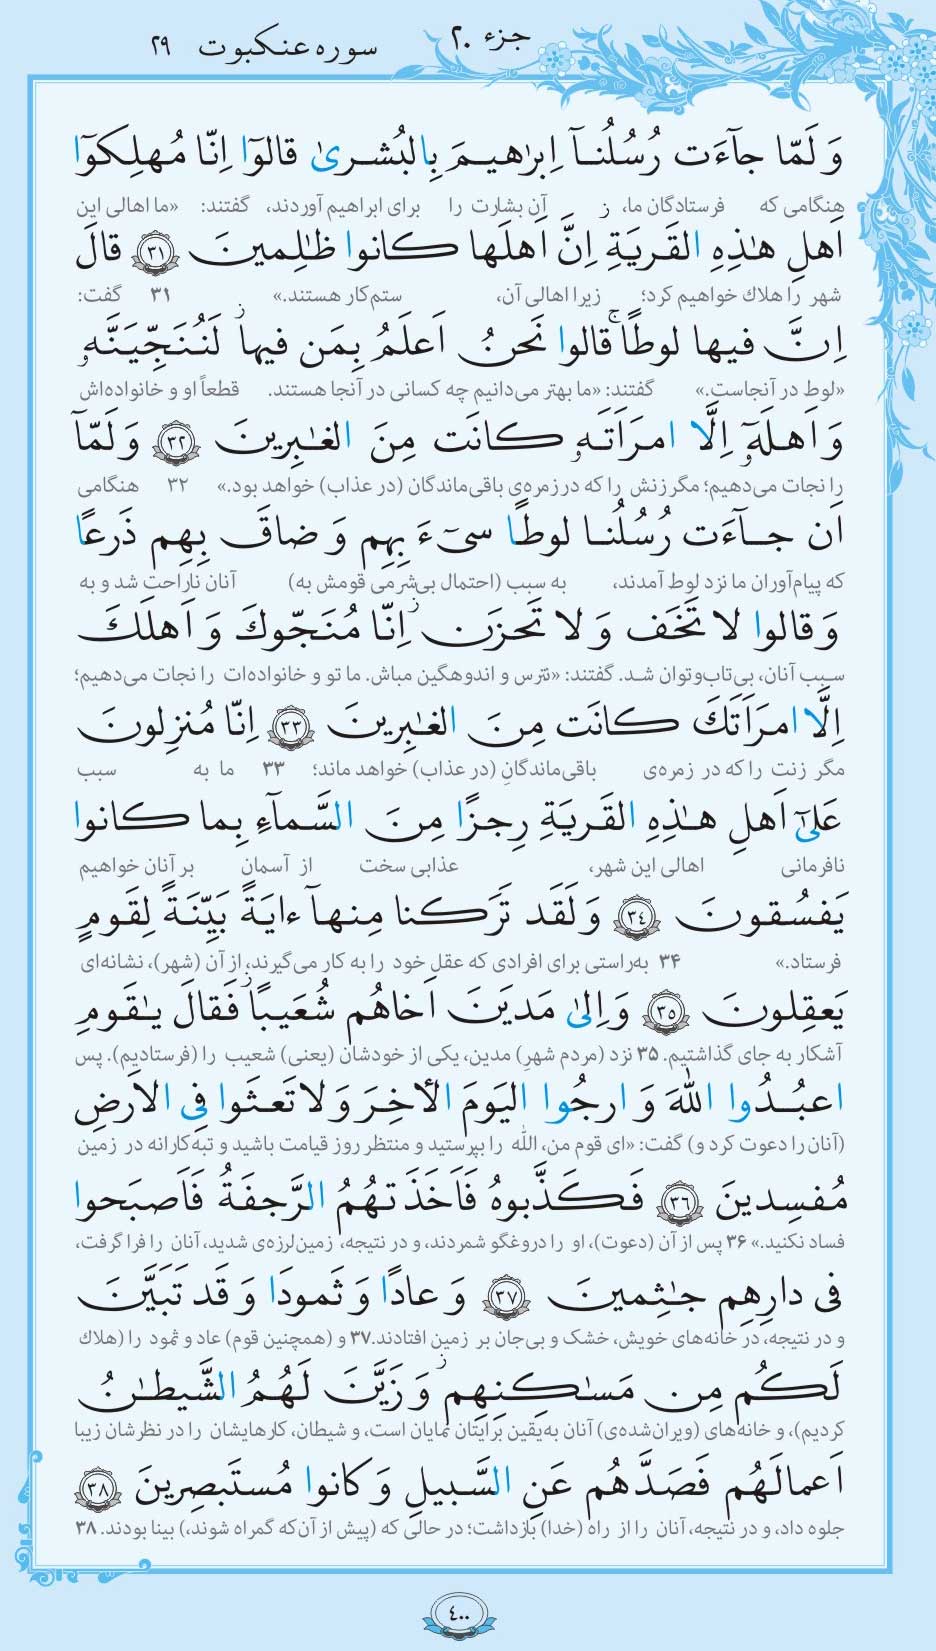 جزء ۲۰
سوره عنکبوت ۲۹
وَ لَمّا جآءَت رُسُلُنـآ اِبرٰهيـمَ بِالبُشـرىٰ قالوٓا اِنّا مُهلِكوٓا
هنگامی که فرستادگان ما، آن بشارت را برای ابراهیم آوردند، گفتند: «ما اهالی این
اَهلِ هٰذِهِ القَريَةِ ۖ اِنَّ اَهلَها كانوا ظٰلِمينَ ﴿٣١﴾ قالَ
شهر را هلاك خواهیم کرد؛ زیرا اهالی آن، ستم‌کار هستند.» ۳۱ گفت:
اِنَّ فيها لوطًا ۚ قالوا نَحنُ اَعلَمُ بِمَن فيها ۖ لَنُنَجِّيَنَّهٗ
«لوط در آنجاست.» گفتند: «ما بهتر می‌دانیم چه کسانی در آنجا هستند. قطعاً او و خانواده‌اش
وَ اَهلَهٗٓ اِلَّا امرَاَتَهٗ كانَت مِنَ الغٰبِرينَ ﴿٣٢﴾ وَ لَمّآ
را نجات می‌دهیم؛ مگر زنش را که در زمره‌ی باقی‌ماندگان (در عذاب) خواهد بود.» ۳۲ هنگامی
اَن جـآءَت رُسُلُنـا لوطًا سيٓءَ بِهِم وَ ضاقَ بِهِم ذَرعًا
که پیام‌آوران ما نزد لوط آمدند، به سبب (احتمال بی‌شرمی قومش به) آنان ناراحت شد و به
وَ قالوا لا تَخَف وَ لا تَحزَن ۖ اِنّا مُنَجّوكَ وَ اَهلَكَ
سبب آنان، بی‌تاب‌وتوان شد. گفتند: «نترس و اندوهگین مباش. ما تو و خانواده‌ات را نجات می‌دهیم؛
اِلَّا امرَاَتَكَ كانَت مِنَ الغٰبِرينَ ﴿٣٣﴾ اِنّا مُنزِلونَ
مگر زنت را که در زمره‌ی باقی‌ماندگانِ (در عذاب) خواهد ماند؛ ۳۳ ما به سبب
عَلىٰٓ اَهلِ هٰذِهِ القَريَةِ رِجزًا مِنَ السَّمآءِ بِما كانوا
نافرمانی اهالی این شهر، عذابی سخت از آسمان بر آنان خواهیم
يَفسُقونَ ﴿٣٤﴾ وَ لَقَد تَرَكنا مِنهآ ءايَةً بَيِّنَةً لِقَومٍ
فرستاد.» ۳۴ به‌راستی برای افرادی که عقل خود را به کار می‌گیرند، از آن (شهر)، نشانه‌ای
يَعقِلونَ ﴿٣٥﴾ وَ اِلىٰ مَديَنَ اَخاهُم شُعَيبًا ۖ فَقالَ يٰقَومِ
آشکار به جای گذاشتیم. ۳۵ نزد (مردم شهرِ) مدین، یکی از خودشان (یعنی) شعیب را (فرستادیم). پس
اعبُـدُوا اللهَ وَ ارجُوا اليَومَ الأخِرَ وَ لا تَعثَوا فِى الاَرضِ
(آنان را دعوت کرد و) گفت: «ای قوم من، الله را بپرستید و منتظر روز قیامت باشید و تبه‌کارانه در زمین
مُفسِدينَ ﴿٣٦﴾ فَكَذَّبوهُ فَاَخَذَتهُمُ الرَّجفَةُ فَاَصبَحوا
فساد نکنید.» ۳۶ پس از آن (دعوت)، او را دروغگو شمردند، و در نتیجه، زمین‌لرزه‌ی شدید، آنان را فرا گرفت،
فى دارِهِم جٰثِمينَ ﴿٣٧﴾ وَ عادًا وَ ثَمودَا وَ قَد تَبَيَّنَ
و در نتیجه، در خانه‌های خویش، خشک و بی‌جان بر زمین افتادند. ۳۷ و (همچنین قوم) عاد و ثمود را (هلاك
لَكُم مِن مَسـٰكِنِهِم ۖ وَ زَيَّنَ لَهُمُ الشَّيطٰنُ
کردیم)، و خانه‌های (ویران‌شده‌ی) آنان به‌یقین برایتان نمایان است، و شیطان، کارهایشان را در نظرشان زیبا
اَعمالَهُم فَصَدَّهُم عَنِ السَّبيلِ وَ كانوا مُستَبصِرينَ ﴿٣٨﴾
جلوه داد، و در نتیجه، آنان را از راه (خدا) بازداشت؛ در حالی که (پیش از آن‌که گمراه شوند،) بینا بودند. ۳۸
٤٠٠